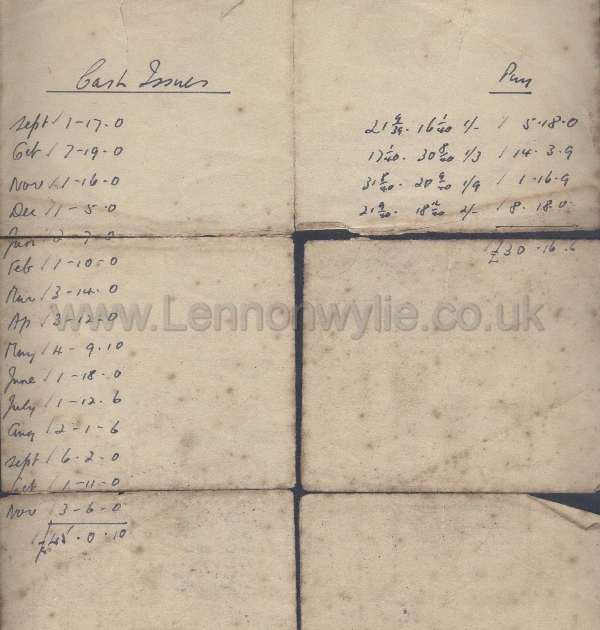 Cash Issues
Pay
Sept / 1-17-0
Oct / 7-19-0
Nov / 1-16-0
Dec / 1-5-0
Jan 2-7-0
Feb / 1-10-0
Mar / 3-14-0
Ap / 3-12-0
May / 4-9-10
June / 1-18-0
July / 1-12-6
Aug / 2-1-6
Sept / 6-2-0
Oct / 1-11-0
Nov / 3-6-0
£45.0.10
21 9/39 - 16 1/40 1/- / 5.18.0
17 1/40 - 30 8/40 1/3 / 14.3.9
31 8/40 - 20 9/40 1/9 / 1.16.9
21 9/40 - 18 12/40 2/- / 8.18.0
£30.16.6
www.Lennonwylie.co.uk